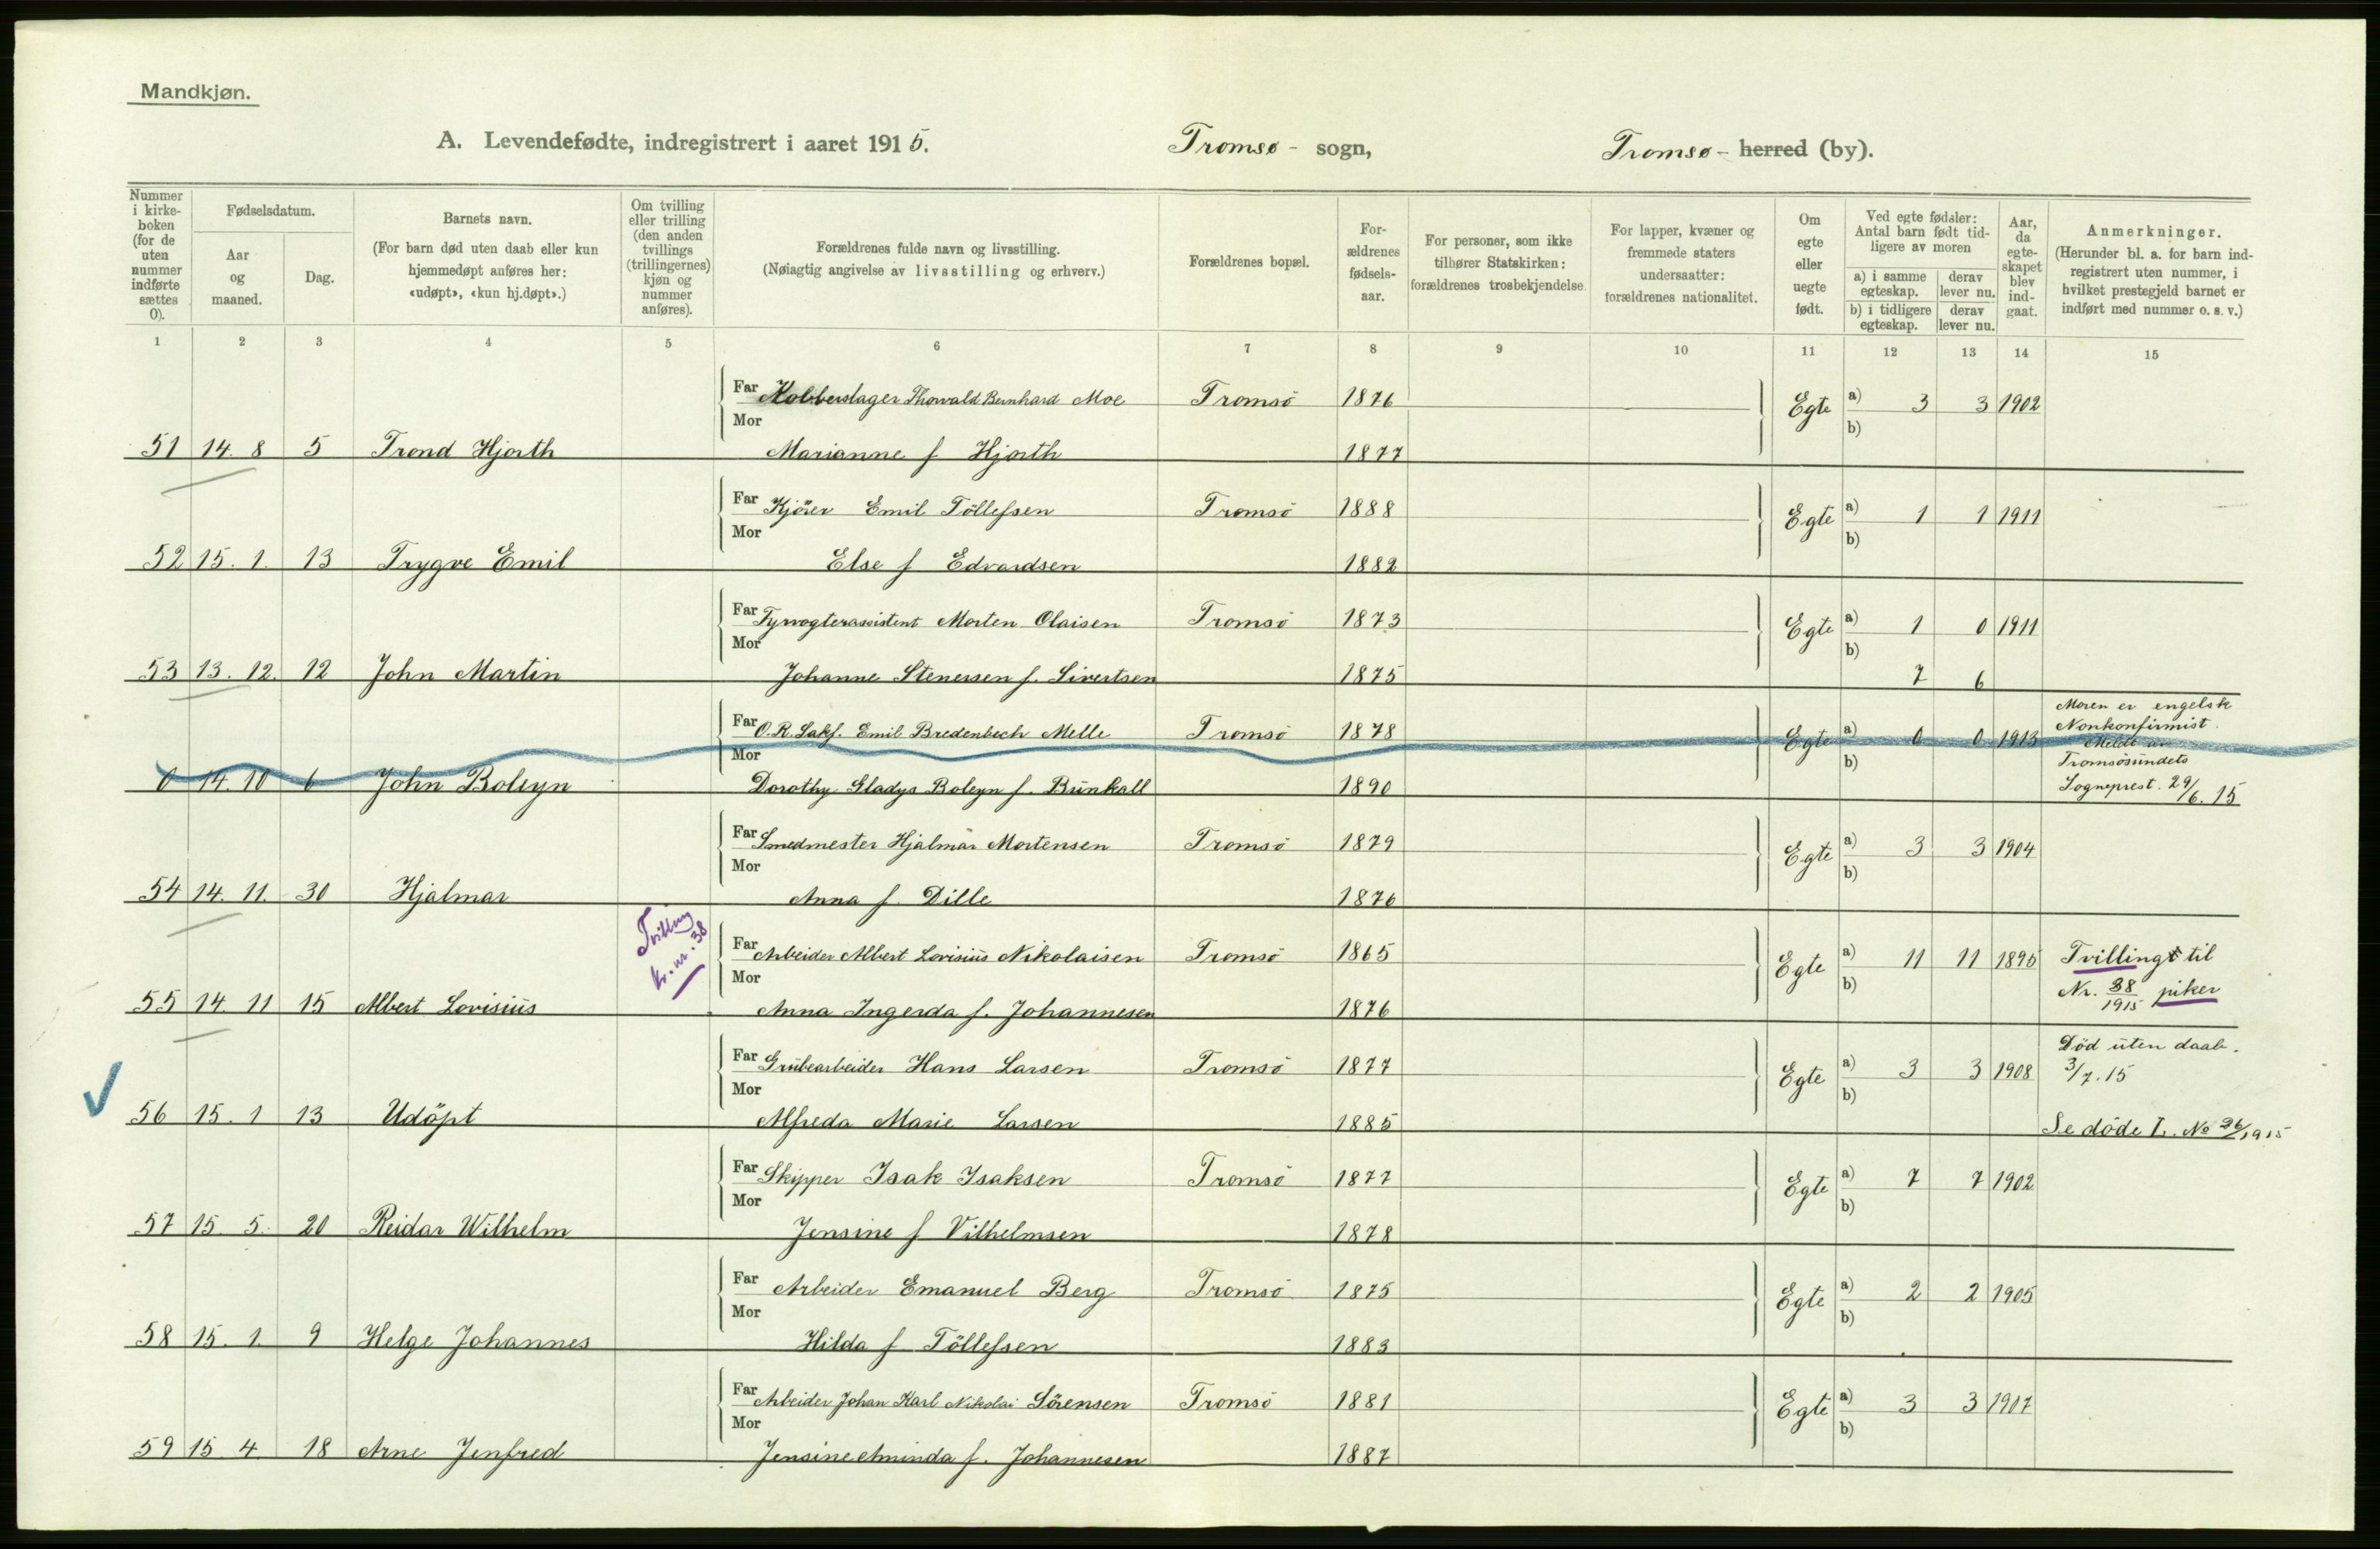 Mandkjøn.
A. Levendefødte, indregistrert i aaret 1915. Tromsø - sogn, Tromsø - herred (by).
Nummer i kirkeboken (for de uten nummer indførte sættes 0).
Fødselsdatum.
Aar og maaned.
Dag.
Barnets navn.
(For barn død uten daab eller kun hjemmedøpt anføres her: «udøpt», «kun hj.døpt».)
Om tvilling eller trilling (den anden tvillings (trillingernes) kjøn og nummer anføres).
Forældrenes fulde navn og livsstilling.
(Nøiagtig angivelse av livsstilling og erhverv.)
Forældrenes bopæl.
For-
ældrenes
fødsels-
aar.
For personer, som ikke
tilhører Statskirken:
forældrenes trosbekjendelse.
For lapper, kvæner og
fremmede staters
undersaatter:
forældrenes nationalitet.
Om
egte
eller
uegte
født.
Ved egte fødsler:
Antal barn født tid-
ligere av moren
a) i samme egteskap.
derav lever nu.
b) i tidligere egteskap.
derav lever nu.
Aar, da egte-skapet blev ind-gaat.
Anmerkninger.
(Herunder bl. a. for barn ind-
registrert uten nummer, i
hvilket prestegjeld barnet er
indført med nummer o. s. v.)
1 2 3 4 5 6 7 8 9 10 11 12 13 14 15
Far Kobberslager Thorvald Bernhard Moe Tromsö 1876 Egte a) 3 3 1902
Mor b)
51 14. 8 5 Trond Hjorth Marianne f Hjorth 1877
Far Kjörer Emil Töllefsen Tromsö 1888 Egte a) 1 1 1911
Mor b)
52 15. 1. 13 Trygve Emil Else f Edvardsen 1882
Far Fyrvogterassistent Morten Olaisen Tromsö 1873 Egte a) 1 0 1911
Mor b)
53 13. 12. 12 John Martin Johanne Stenersen f. Sivertsen 1875 7 6
Far O.R. Sakf. Emil Bredenbech Melle Tromsö 1878 Egte a) 0 0 1913 Moren er engelsk
Nonkonfirmist.
Mor b) Meldt av
Tromsösundets
0 14. 10 6 John Boleyn Dorothy Gladys Boleyn f. Bunkall 1890 Sogneprest. 29/6. 15
Far Smedmester Hjalmar Mortensen Tromsö 1879 Egte a) 3 3 1904
Mor b)
54 14. 11. 30 Hjalmar Anna f. Dille 1876
Tvilling
kv. nr. 38
Far Arbeider Albert Lovisius Nikolaisen Tromsö 1865 Egte a) 11 11 1895 Tvilling til
Mor b) Nr. 38/1915 piker
55 14. 11 15 Albert Lovisius Anna Ingerda f. Johannesen 1876
Död uten daab.
Far Grubearbeider Hans Larsen Tromsö 1877 Egte a) 3 3 1908 3/7. 15
Mor b)
56 15. 1 13 Udöpt Alfreda Marie Larsen 1885 Se döde I. No 26/1915
Far Skipper Isak Isaksen Tromsö 1877 Egte a) 7 7 1902
Mor b)
57 15. 5. 20 Reidar Wilhelm Jensine f Vilhelmsen 1878
Far Arbeider Emanuel Berg Tromsö 1875 Egte a) 2 2 1905
Mor b)
58 15. 1. 9 Helge Johannes Hilda f Töllefsen 1883
Far Arbeider Johan Karl Nikolai Sörensen Tromsö 1881 Egte a) 3 3 1907
Mor b)
59 15 4. 18 Arne Jenfred Jensine Aminda f. Johannesen 1887